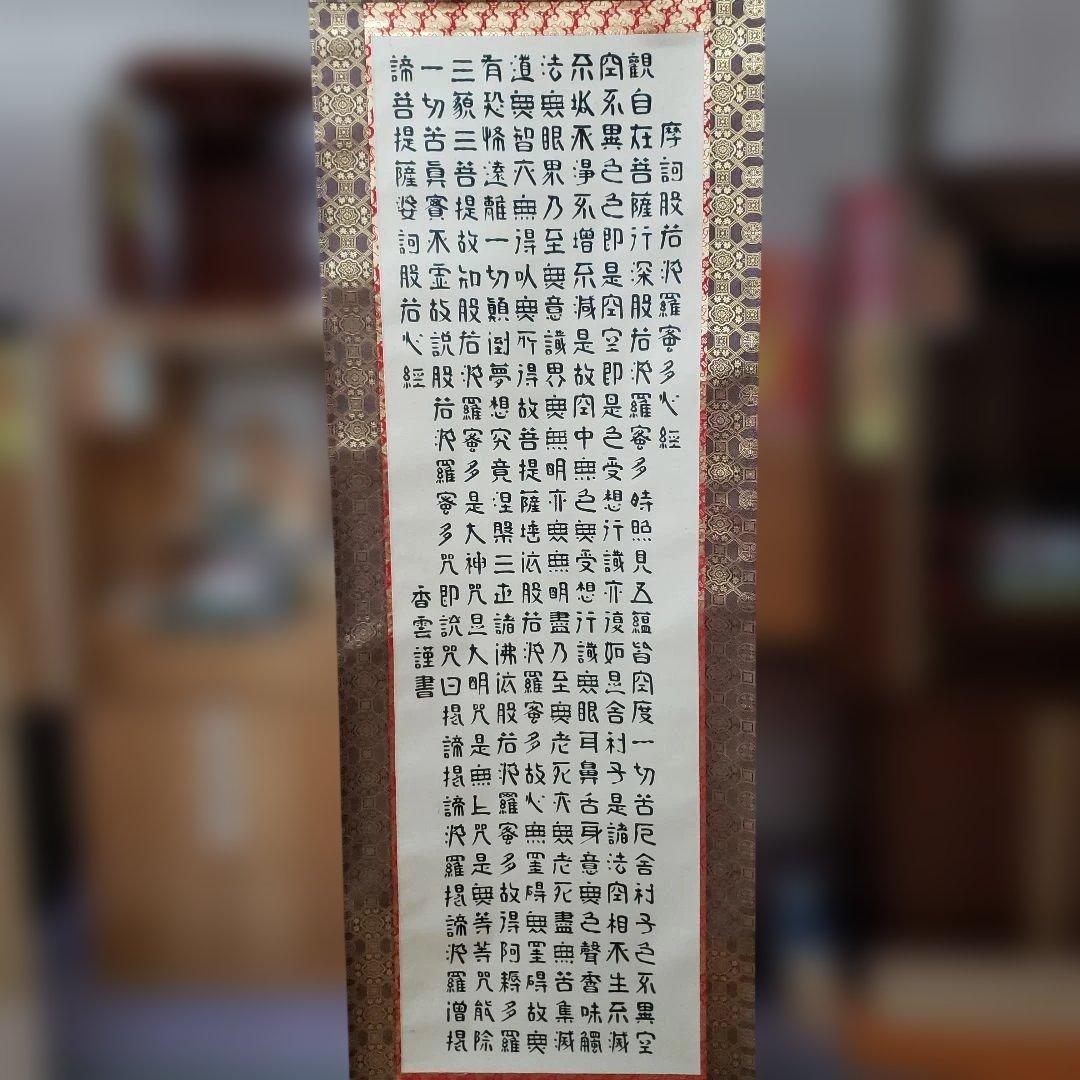 摩訶般若波羅蜜多心經
觀自在菩薩行深般若波羅蜜多時照見五蘊皆空度一切苦厄舍利子色不異空
空不異色色即是空空即是色受想行識亦復如是舍利子是諸法空相不生不滅
不垢不淨不增不減是故空中無色無受想行識無眼耳鼻舌身意無色聲香味觸
法無眼界乃至無意識界無無明亦無無明盡乃至無老死亦無老死盡無苦集滅
道無智亦無得以無所得故菩提薩埵依般若波羅蜜多故心無罣碍無罣碍故無
有恐怖遠離一切顛倒夢想究竟涅槃三世諸佛依般若波羅蜜多故得阿耨多羅
三藐三菩提故知般若波羅蜜多是大神咒是大明咒是無上咒是無等等咒能除
一切苦眞實不虛故說般若波羅蜜多咒即說咒曰揭諦揭諦波羅揭諦波羅僧揭
諦菩提薩婆訶般若心經
香雲謹書